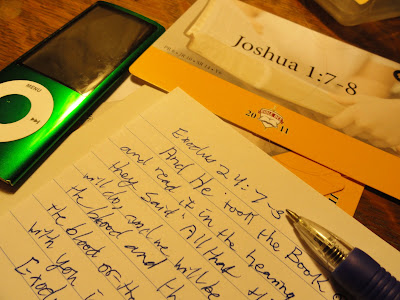 MENU
Joshua 1:7-8
20 11
Exodus 24:7-8
And He took the Book
and read it in the hearing
they said "All that th
will do, and we will be
the blood and th
the blood of th
with you i
Exod